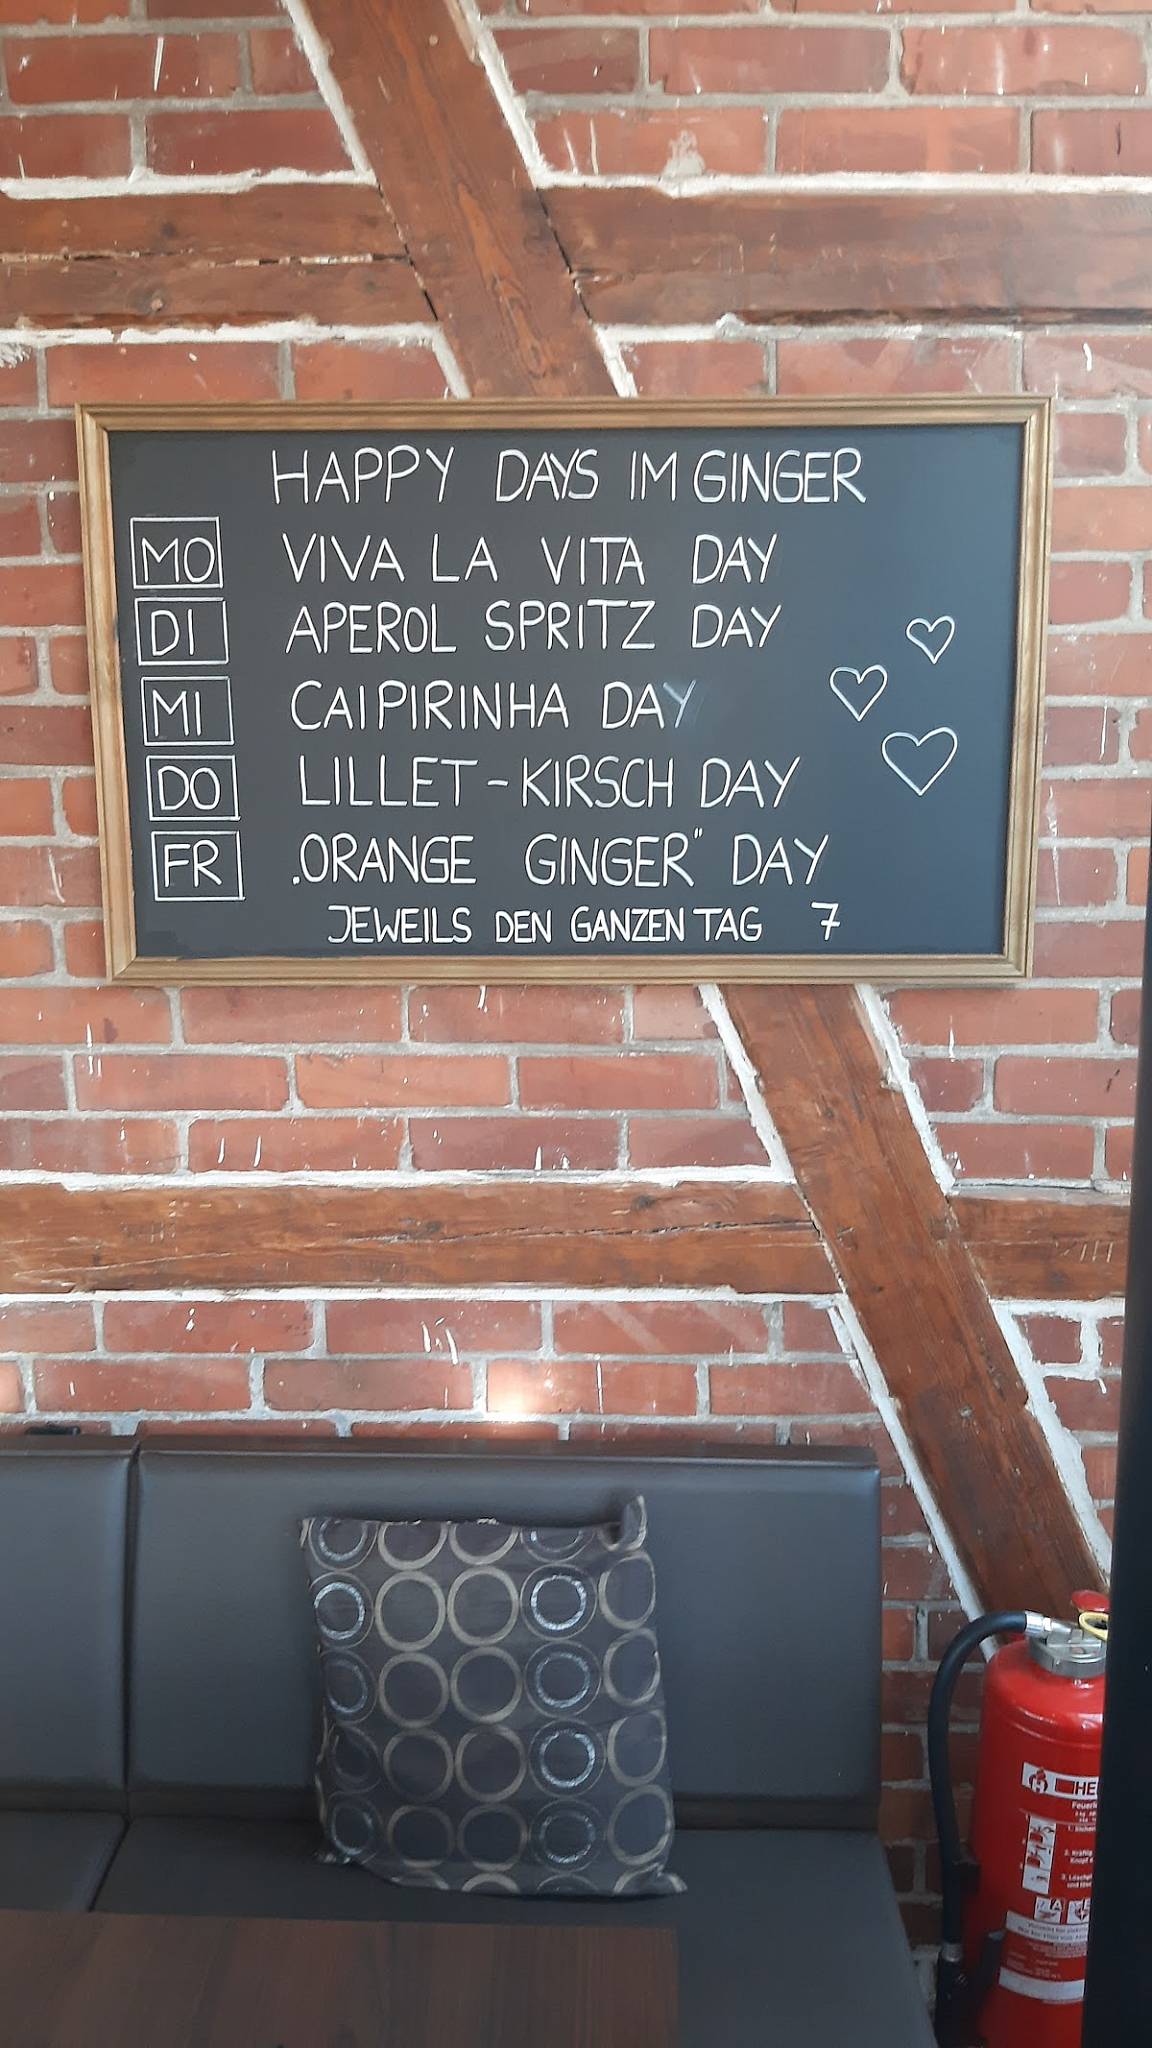 HAPPY DAYS IM GINGER
MO VIVA LA VITA DAY
DI APEROL SPRITZ DAY
MI CAIPIRINHA DAY
DO LILLET-KIRSCH DAY
FR „ORANGE GINGER" DAY
JEWEILS DEN GANZEN TAG 7
HE
Feuer